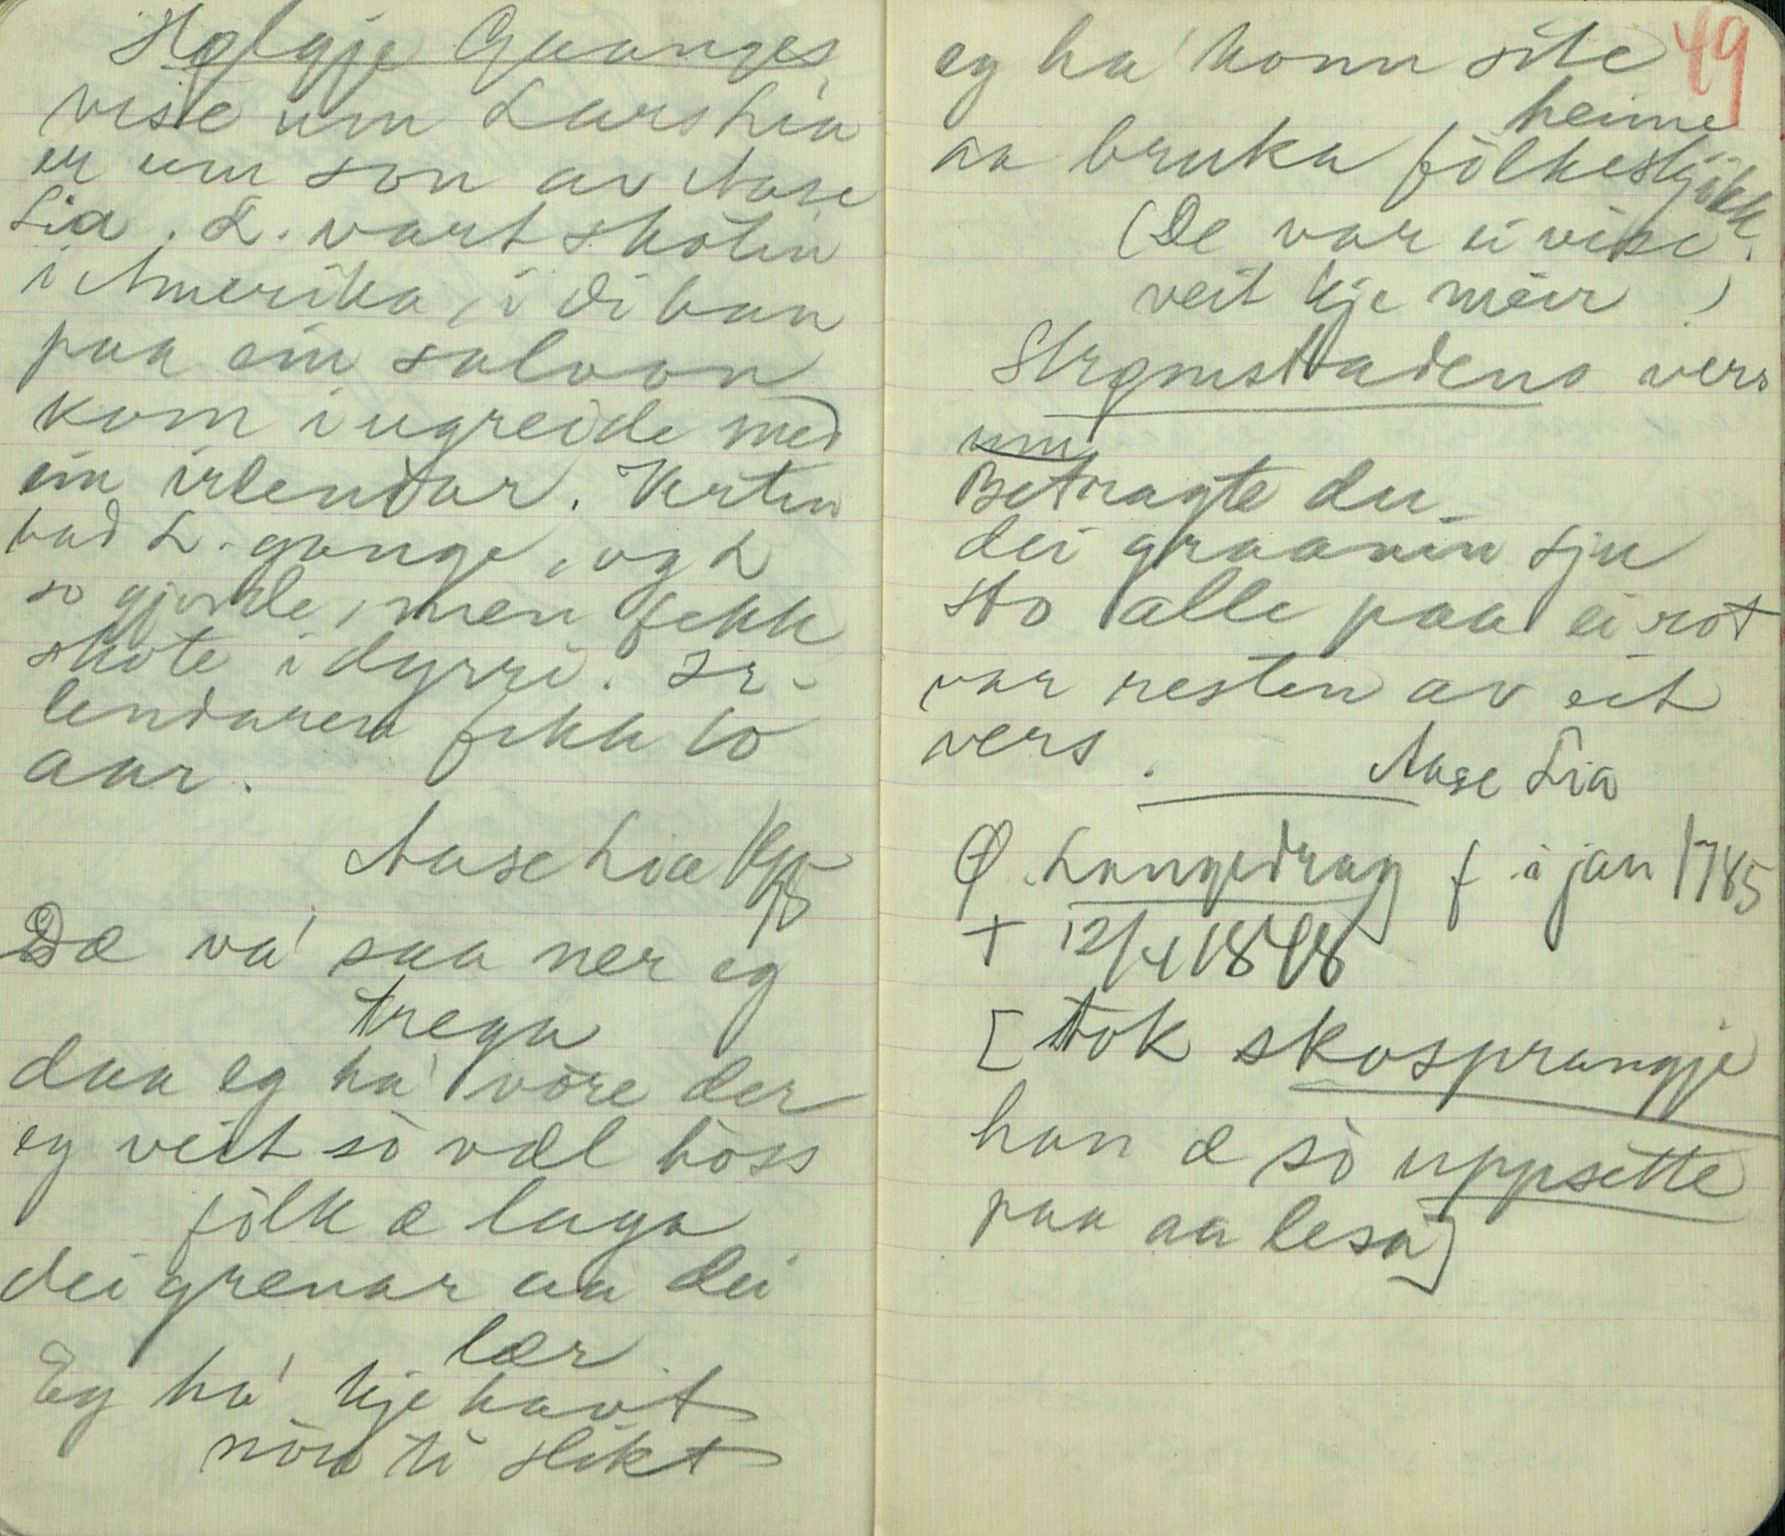 Hølgje Gaanges
vise um Lars Lia
er um son av Aase
Lia. L. vart skòtin
i Amerika, i di han
paa ein saloon
kom i ugreide med
ein irlendar. Verten
bad L. gange, og L
so gjorde, men fekk
skote i dyrri. Ir-
lendaren fekk 10
aar.
Aase Lia
Dæ va' saa ner eg
trega
daa eg ha' vòre der
eg veit sò væl hòss
fòlk æ laga
dei grenar aa dei
lær
Eg ha' kje havt
nòn ti slikt
49
eg ha' konn site
heime
aa bruka fòlkeskjikk
(De var ei vise.
veit kje meir)
Strømstadens vers
um
Betragte du
dei graanin sju
sto alle paa ei rot
var resten av eit
vers.
Aase Lia
Ø. Langedrag f i jan 1785
+ 12/4 1848
[Tok skosprangje
han æ sò uppsette
paa aa lesa]